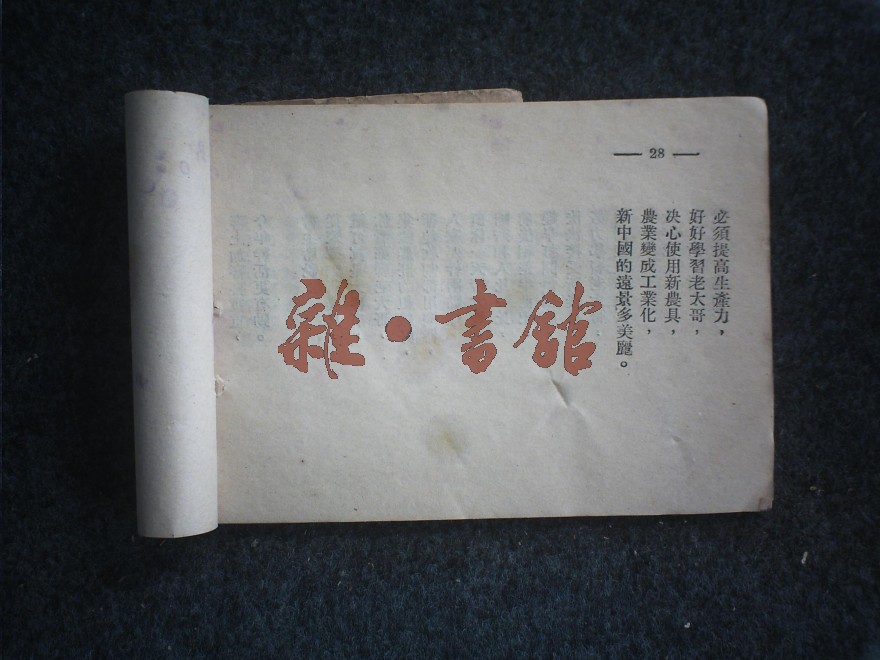 — 28 —
必須提高生產力，
好好學習老大哥，
决心使用新農具，
農業變成工業化，
新中國的遠景多美麗。
雜·書舘